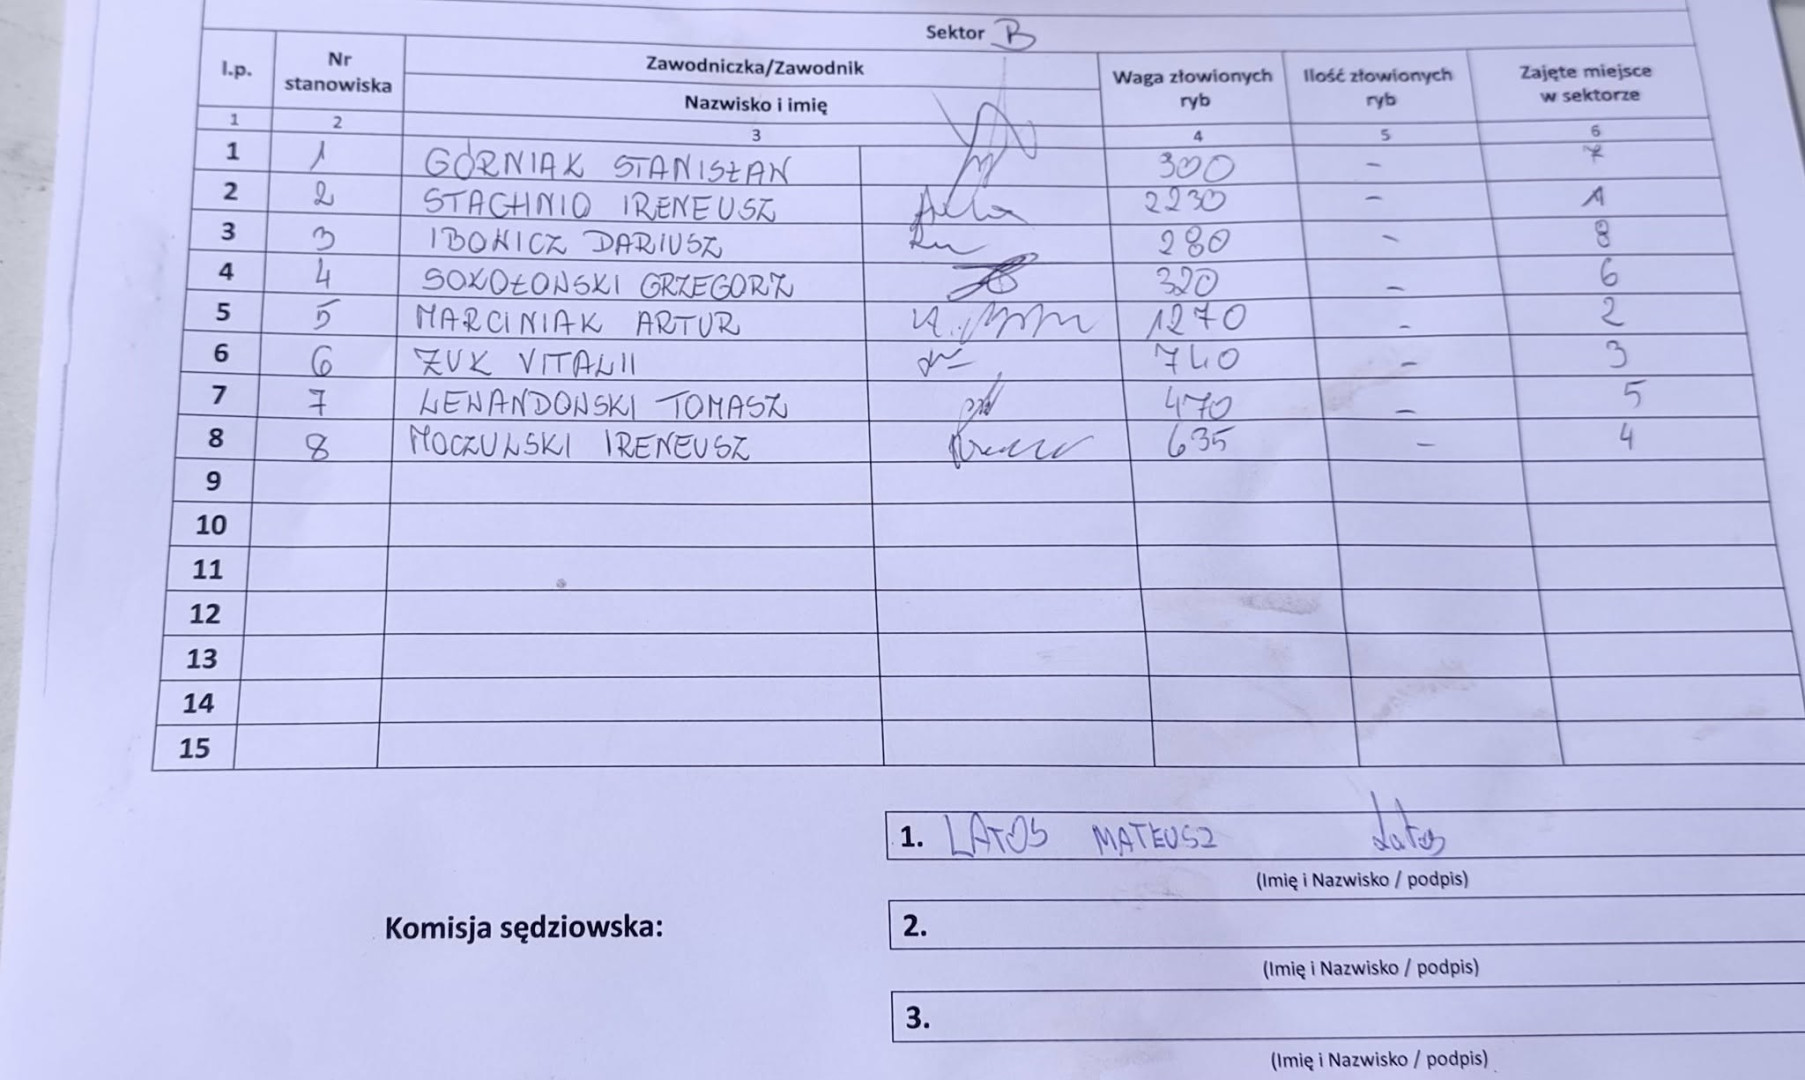 Sektor B
l.p. Nr stanowiska Zawodniczka/Zawodnik Nazwisko i imię Waga złowionych ryb Ilość złowionych ryb Zajęte miejsce w sektorze
1 2 3 4 5 6
1 1 GÓRNIAK STANISŁAW 300 – 7
2 2 STACHNIO IRENEUSZ 2230 – 1
3 3 IBOWICZ DARIUSZ 280 – 8
4 4 SOKOŁOWSKI GRZEGORZ 320 – 6
5 5 MARCINIAK ARTUR 1270 – 2
6 6 ZUK VITALII 740 – 3
7 7 LEWANDOWSKI TOMASZ 470 – 5
8 8 MOCZULSKI IRENEUSZ 635 – 4
9
10
11
12
13
14
15
1. LATOS MATEUSZ Latos
(Imię i Nazwisko / podpis)
Komisja sędziowska:
2.
(Imię i Nazwisko / podpis)
3.
(Imię i Nazwisko / podpis)